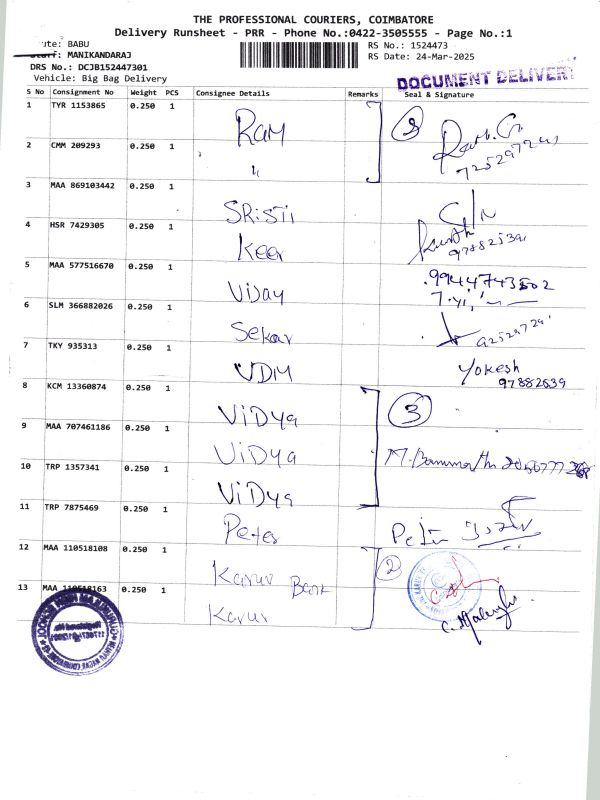 THE PROFESSIONAL COURIERS, COIMBATORE
Delivery Runsheet - PRR - Phone No.:0422-3505555 - Page No.:1
ute: BABU
Staff: MANIKANDARAJ
DRS No.: DCJB152447301
Vehicle: Big Bag Delivery
RS No.: 1524473
RS Date: 24-Mar-2025
DOCUMENT DELIVERY
S No Consignment No Weight PCS Consignee Details Remarks Seal & Signature
1 TYR 1153865 0.250 1 Ram 2
2 CMM 209293 0.250 1 "
3 MAA 869103442 0.250 1 SRiSTi
4 HSR 7429305 0.250 1 Keer
5 MAA 577516670 0.250 1 Vijay
6 SLM 366882026 0.250 1 Sekar
7 TKY 935313 0.250 1 VDM Yokesh
97882639
8 KCM 13360874 0.250 1 ViDya 3
9 MAA 707461186 0.250 1 ViDya
10 TRP 1357341 0.250 1 ViDya
11 TRP 7875469 0.250 1 Peter
12 MAA 110518108 0.250 1 Karur Bank 2
13 MAA 110518163 0.250 1 Karur